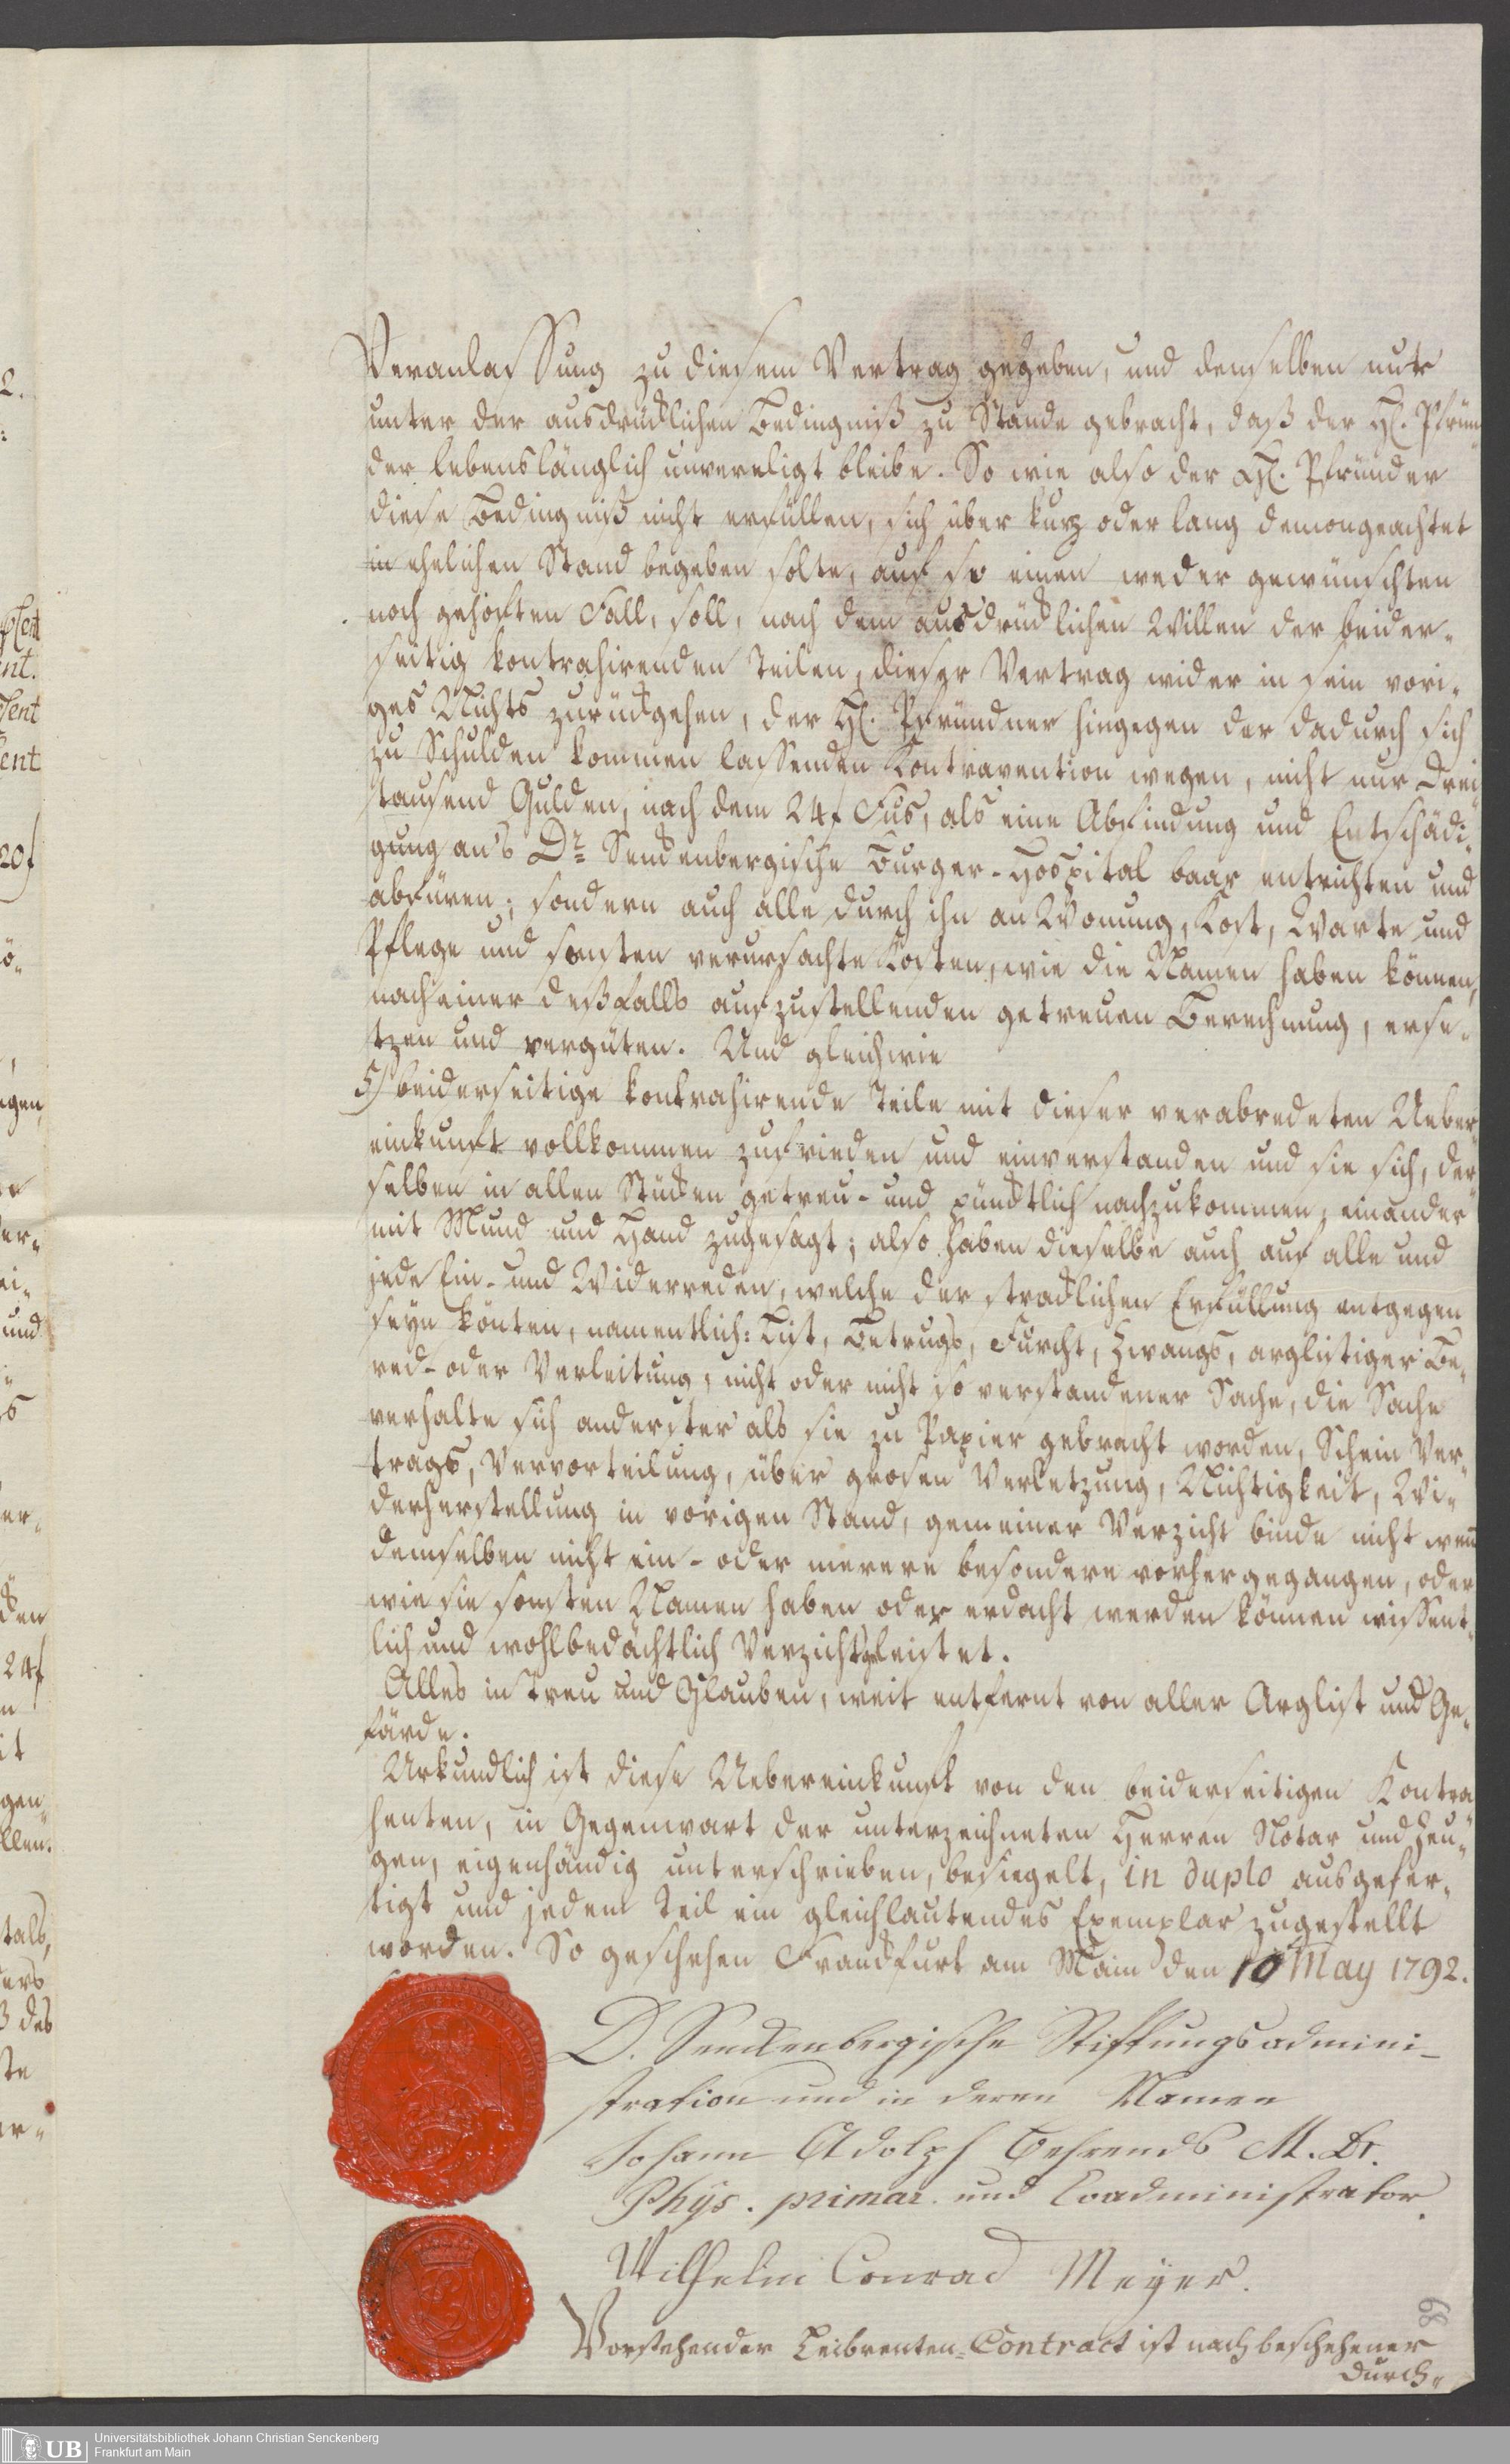 Veranlassung zu diesem Vertrag gegeben, und denselben nur
unter der ausdrücklichen Bedingniß zu Stande gebracht, daß der H. Pfrün
der lebenslänglich unvereligt bleibe. So wie also der H. Pfründer
diese Bedingniß nicht erfüllen, sich über kurz oder lang demongeachtet
in ehelichen Stand begeben solte, auf so einen weder gewünschten
noch gehoften Fall, soll, nach dem ausdrücklichen Willen der beider-
seitig kontrahirenden Teilen, dieser Vertrag wider in sein vori-
ges Nichts zurückgehen, der H. Pfründner hingegen der dadurch sich
zu Schulden kommen lassenden Kontravention wegen, nicht nur Drei
tausend Gulden, nach dem 24f Fus, als eine Abfindung und Entschädi-
gung an's Dr. Senckenbergische Burger-Hospital baar entrichten und
abfüren; sondern auch alle durch ihn an Wonung, Kost, Warte und
Pflege und sonsten verursachte Kosten, wie die Namen haben können,
nach einer deßfalls aufzustellenden getreuen Berechnung, erse-
tzen und vergüten. Und gleichwie
5) beiderseitige kontrahirende Teile mit dieser verabredeten Ueber-
einkunft vollkommen zufrieden und einverstanden und sie sich, der
selben in allen Stücken getreu- und pünctlich nachzukommen, einander
mit Mund und Hand zugesagt; also haben dieselbe auch auf alle und
jede Ein- und Widerreden, welche der stracklichen Erfüllung entgegen
seyn könten, namentlich: List, Betrugs, Furcht, Zwangs, arglistiger Be-
red- oder Verleitung, nicht oder nicht so verstandener Sache, die Sache
verhalte sich anderster als sie zu Papier gebracht worden, Schein Ver-
trags, Vervorteilung, über grosen Verletzung, Nichtigkeit, Wi-
derherstellung in vorigen Stand, gemeiner Verzicht binde nicht wenn
demselben nicht ein- oder merere besondere vorhergegangen, oder
wie sie sonsten Namen haben oder erdacht werden können wissent-
lich und wohlbedächtlich Verzicht geleistet.
Alles in Treu und Glauben, weit entfernt von aller Arglist und Ge-
färde.
Urkundlich ist diese Uebereinkunft von den beiderseitigen Kontra
henten, in Gegenwart der unterzeichneten Herren Notar und Zeu-
gen, eigenhändig unterschrieben, besiegelt, in duplo ausgefer-
tigt und jedem Teil ein gleichlautendes Exemplar zugestellt
worden. So geschehen Franckfurt am Main den 10 May 1792.
D. Senckenbergische Stiftungsadmini-
stration und in deren Namen
Johann Adolph Behrends M. Dr.
Phys. primar. und Coadministrator.
Wilhelm Conrad Meyer.
Vorstehender Leibrenten-Contract ist nach beschehener
durch-
89
Universitätsbibliothek Johann Christian Senckenberg
Frankfurt am Main
UB